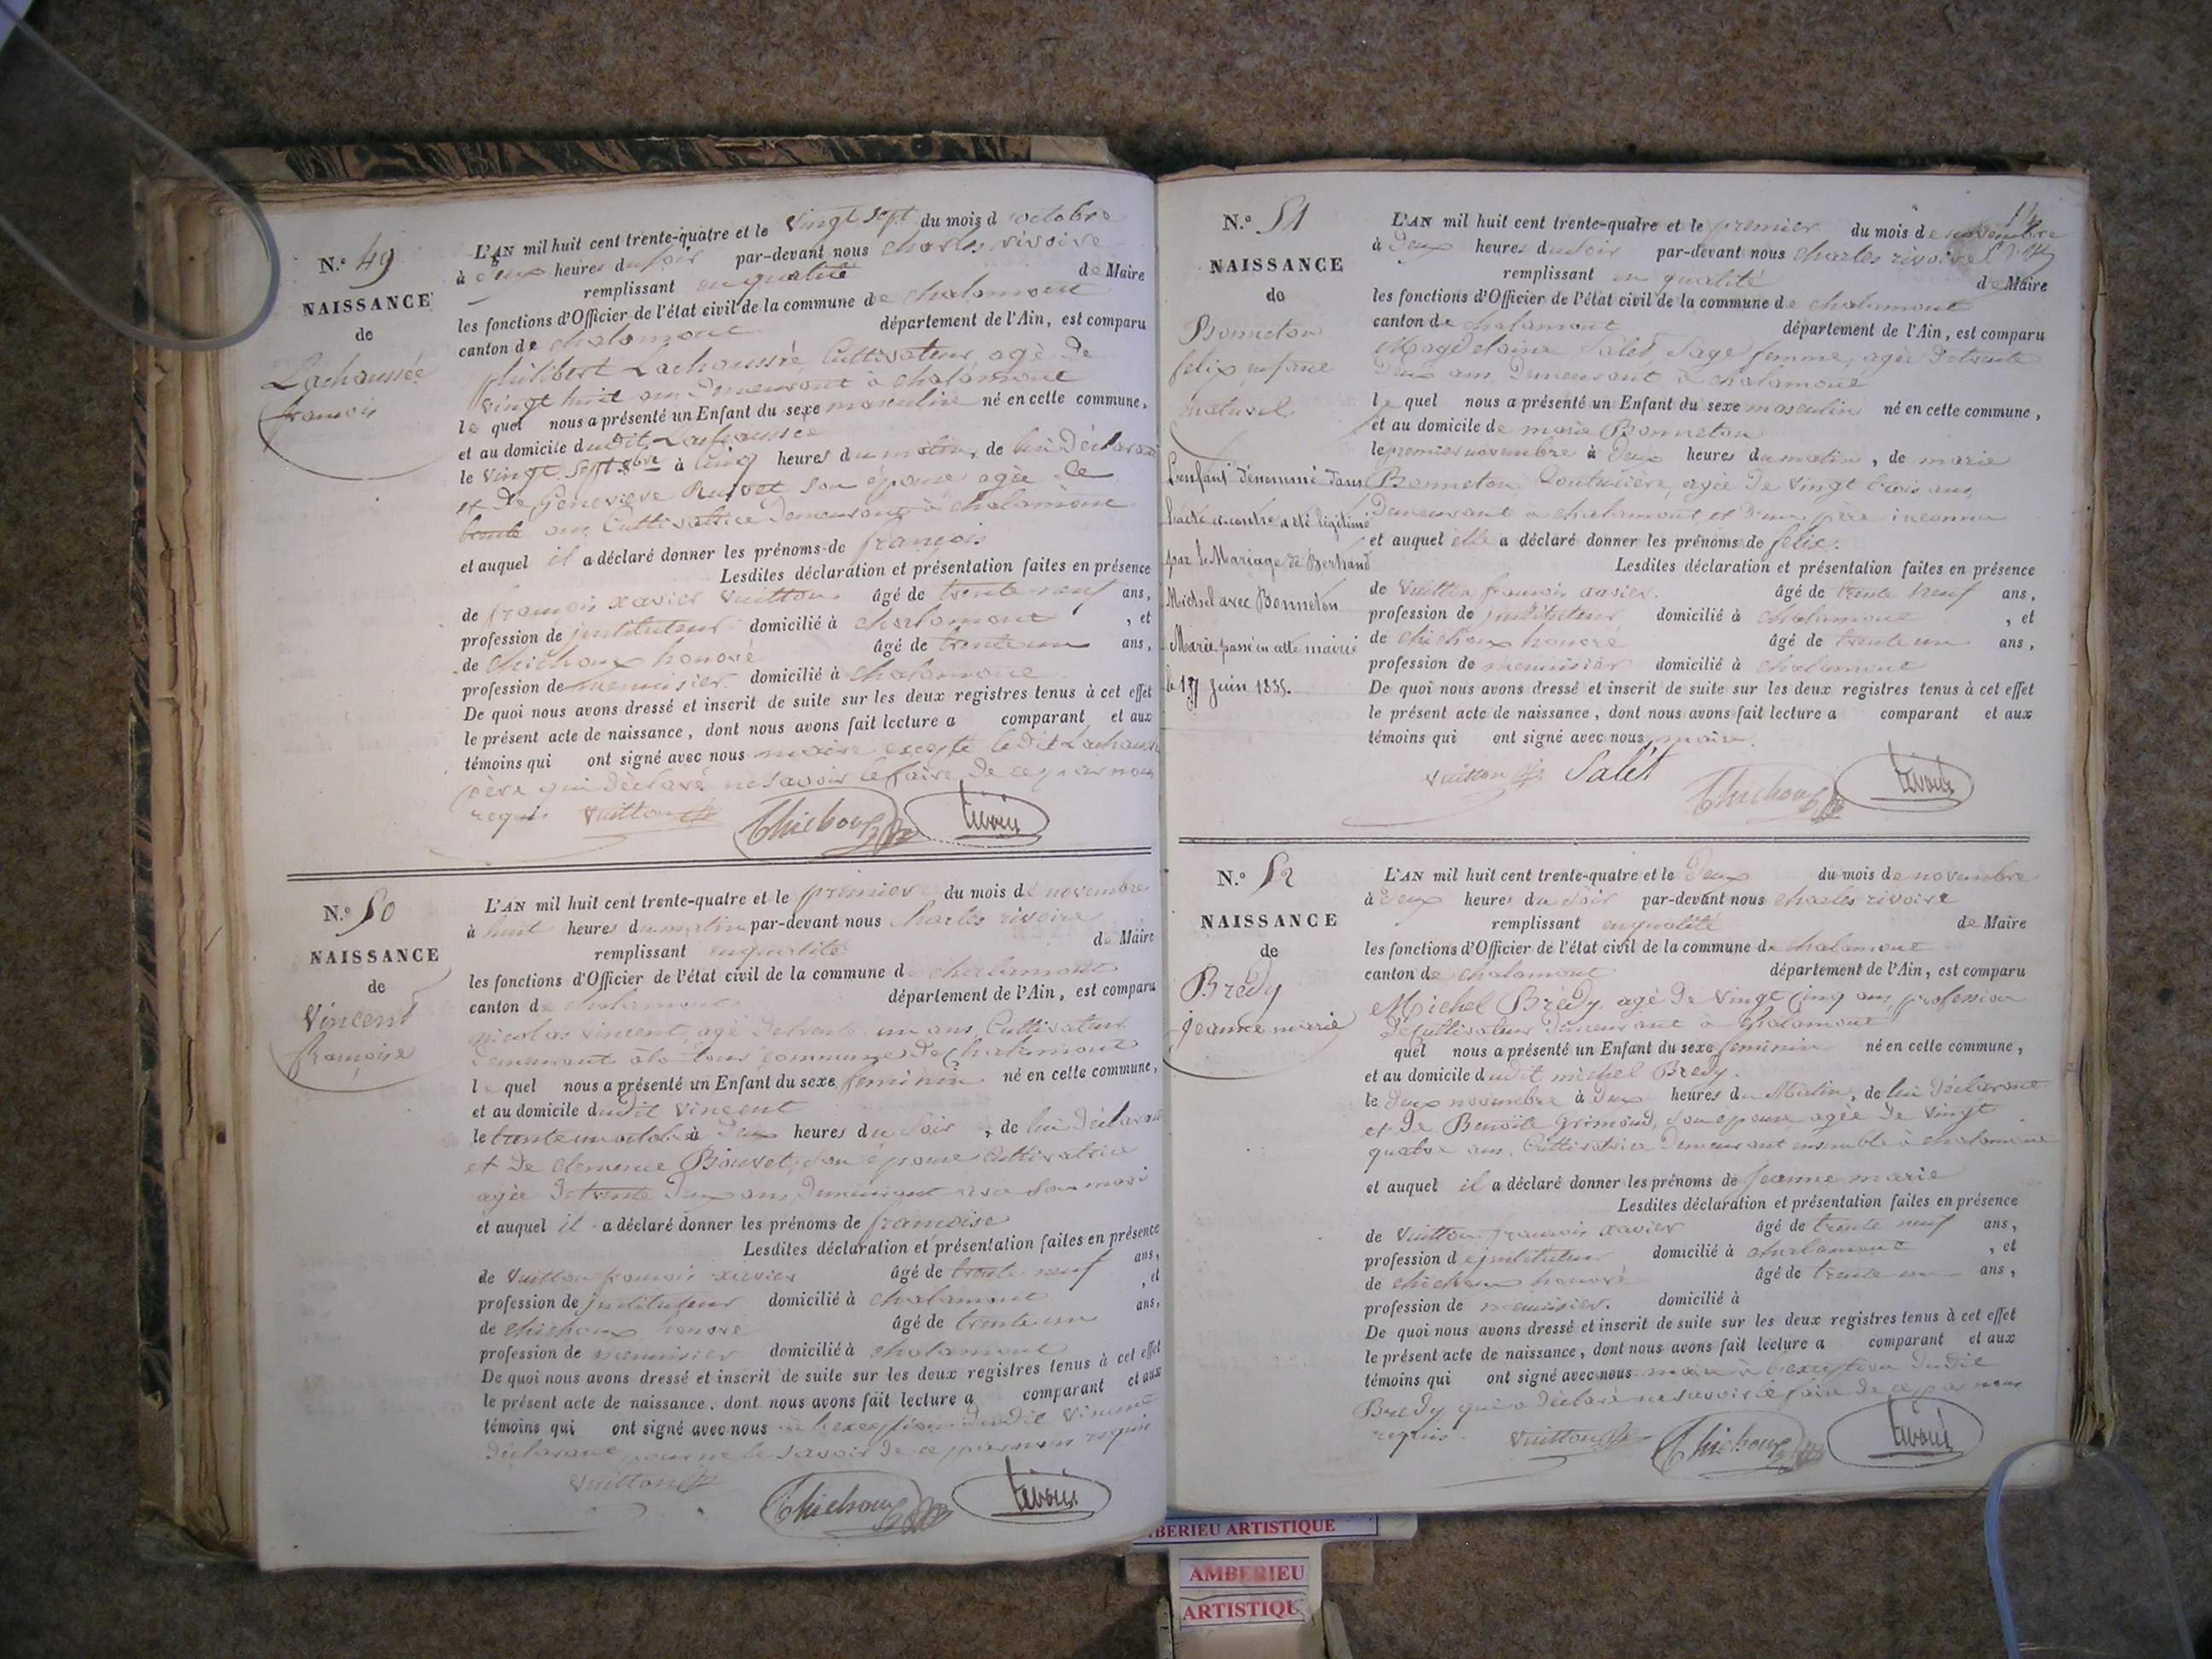 N.º 49
NAISSANCE
de
Lachaussée
françois
L'AN mil huit cent trente-quatre et le Vingt sept du mois d octobre
à deux heures du soir par-devant nous charles rivoire
remplissant en qualité de Maire
les fonctions d'Officier de l'état civil de la commune de chalamont
canton de chalamont département de l'Ain, est comparu
philibert Lachaussée, Cultivateur, agé de
vingt huit ans demeurant à chalamont
le quel nous a présenté un Enfant du sexe masculin né en cette commune,
et au domicile dudit Lachaussée
le vingt sept 8bre à cinq heures du matin, de lui déclarant
et de Genevieve Ruivet son épouse agée de
trente ans Cultivatrice demeurant à chalamont
et auquel il a déclaré donner les prénoms de françois
Lesdites déclaration et présentation faites en présence
de françois xavier Vuitton âgé de trente neuf ans,
profession de instituteur domicilié à chalamont , et
de chichoux honoré âgé de trente un ans,
profession de menuisier domicilié à chalamont
De quoi nous avons dressé et inscrit de suite sur les deux registres tenus à cet effet
le présent acte de naissance, dont nous avons fait lecture a comparant et aux
témoins qui ont signé avec nous maire excepté ledit Lachaussé
père qui déclaré ne savoir le faire de ce par nous
requis Vuitton Chichoux rivoire
N.º 50
NAISSANCE
de
Vincent
françoise
L'AN mil huit cent trente-quatre et le premier du mois de novembre
à huit heures du matin par-devant nous charles rivoire
remplissant en qualité de Maire
les fonctions d'Officier de l'état civil de la commune de chalamont
canton de chalamont département de l'Ain, est comparu
nicolas vincent, agé de trente un ans, Cultivateur
demeurant à la commune de Chalamont
le quel nous a présenté un Enfant du sexe feminin né en cette commune,
et au domicile dudit Vincent
le trente un octobre à deux heures du soir, de lui déclarant
et de clemence Bouvet, son épouse Cultivatrice
agée de trente deux ans, demeurant avec son mari
et auquel il a déclaré donner les prénoms de françoise
Lesdites déclaration et présentation faites en présence
de Vuitton françois xavier âgé de trente neuf ans,
profession de instituteur domicilié à chalamont , et
de chichoux honoré âgé de trente un ans,
profession de menuisier domicilié à chalamont
De quoi nous avons dressé et inscrit de suite sur les deux registres tenus à cet effet
le présent acte de naissance, dont nous avons fait lecture a comparant et aux
témoins qui ont signé avec nous à l'exception dudit Vincent
déclarant pour ne le savoir de ce par nous requis
Vuitton Chichoux rivoire
N.º 51
NAISSANCE
de
Bonneton
felix enfant
naturel
L'enfant dénommé dans
l'acte ci-contre a été légitimé
par le Mariage de Bertrand
Michel avec Bonneton
Marie passé en cette mairie
le 17 Juin 1835.
L'AN mil huit cent trente-quatre et le premier du mois de novembre
à deux heures du soir par-devant nous charles rivoire
remplissant en qualité de Maire
les fonctions d'Officier de l'état civil de la commune de chalamont
canton de chalamont département de l'Ain, est comparu
Magdelaine Salet, Sage femme, agée de trente
deux ans, demeurant à chalamont
le quel nous a présenté un Enfant du sexe masculin né en cette commune,
et au domicile de marie Bonneton
le premier novembre à deux heures du matin, de marie
Bonneton Couturière, agée de vingt trois ans,
demeurant à chalamont, et d'un père inconnu
et auquel elle a déclaré donner les prénoms de felix.
Lesdites déclaration et présentation faites en présence
de Vuitton françois xavier. âgé de trente neuf ans,
profession de instituteur domicilié à chalamont , et
de chichoux honoré âgé de trente un ans,
profession de menuisier domicilié à chalamont
De quoi nous avons dressé et inscrit de suite sur les deux registres tenus à cet effet
le présent acte de naissance, dont nous avons fait lecture a comparant et aux
témoins qui ont signé avec nous maire.
Vuitton Salét Chichoux rivoire
N.º 52
NAISSANCE
de
Brédy
jeanne marie
L'AN mil huit cent trente-quatre et le deux du mois de novembre
à deux heures du soir par-devant nous charles rivoire
remplissant en qualité de Maire
les fonctions d'Officier de l'état civil de la commune de chalamont
canton de chalamont département de l'Ain, est comparu
Michel Brédy agé de vingt cinq ans, profession
de cultivateur demeurant à chalamont
quel nous a présenté un Enfant du sexe feminin né en cette commune,
et au domicile dudit michel Bredy.
le deux novembre à deux heures du Matin, de lui déclarant
et de Benoite Grimoud, son epouse agée de vingt
quatre ans, Cultivatrice demeurant ensemble à chalamont
et auquel il a déclaré donner les prénoms de jeanne marie
Lesdites déclaration et présentation faites en présence
de Vuitton françois xavier âgé de trente neuf ans,
profession de instituteur domicilié à chalamont , et
de chichoux honoré âgé de trente un ans,
profession de menuisier. domicilié à
De quoi nous avons dressé et inscrit de suite sur les deux registres tenus à cet effet
le présent acte de naissance, dont nous avons fait lecture a comparant et aux
témoins qui ont signé avec nous maire à l'exception dudit
Bredy qui a déclaré ne savoir le faire de ce par nous
requis. Vuitton Chichoux rivoire
BERIEU ARTISTIQUE
AMBERIEU
ARTISTIQU